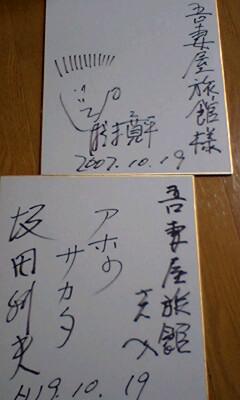 吾妻屋旅館様
2007.10.19
吾妻屋旅館
さんへ
アホの
サカタ
坂田利夫
H19.10.19